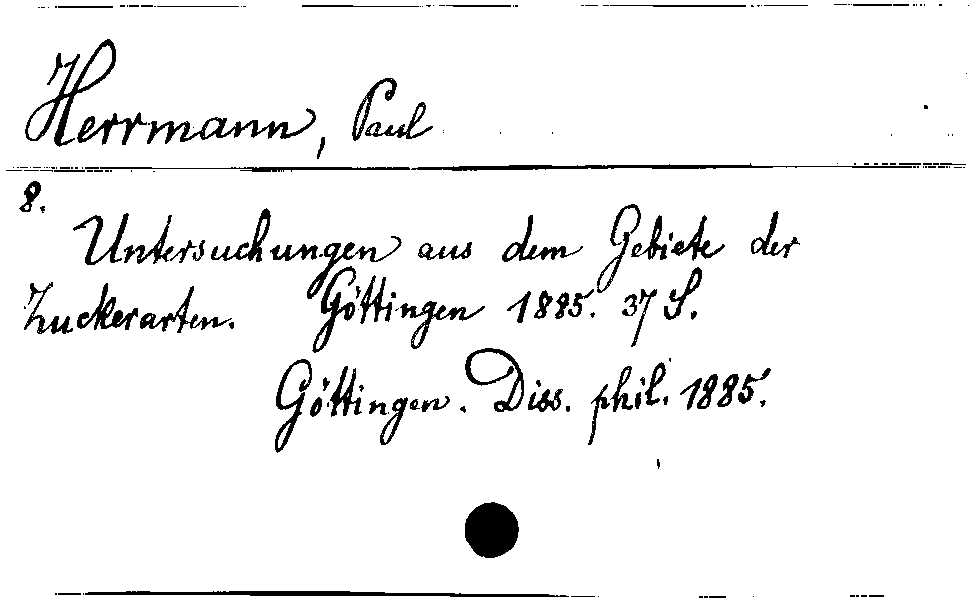 Herrmann, Paul
8.
Untersuchungen aus dem Gebiete der
Zuckerarten. Göttingen 1885. 37 S.
Göttingen. Diss. phil. 1885.